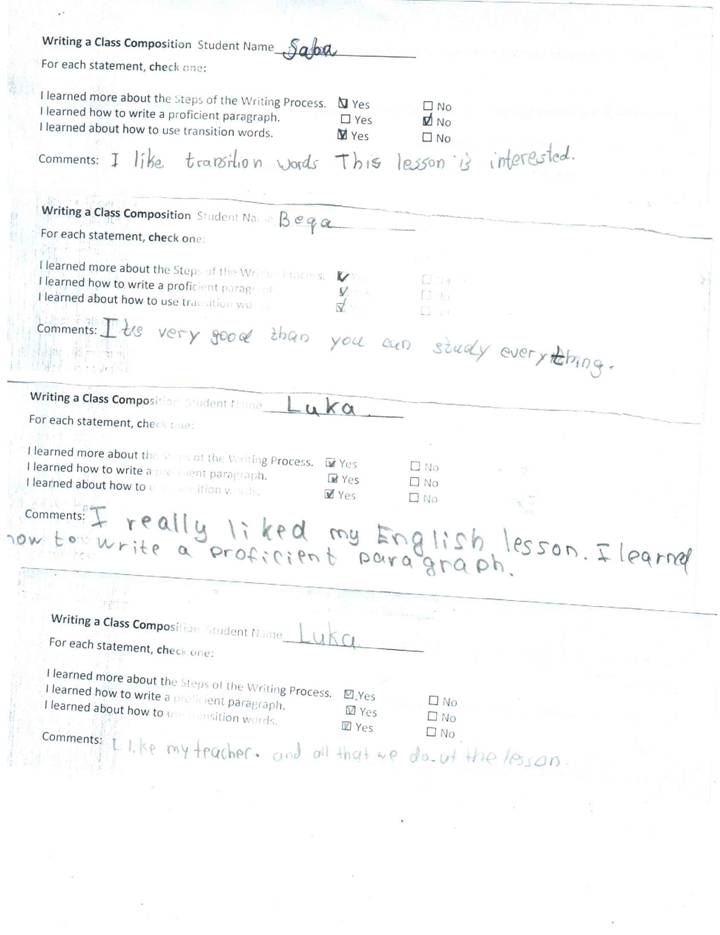 Writing a Class Composition Student Name Saba
For each statement, check one:
I learned more about the Steps of the Writing Process. ☑ Yes ☐ No
I learned how to write a proficient paragraph. ☐ Yes ☑ No
I learned about how to use transition words. ☑ Yes ☐ No
Comments: I like transition words This lesson is interested.
Writing a Class Composition Student Name Beqa
For each statement, check one:
I learned more about the Steps of the Writing Process. ☑
I learned how to write a proficient paragraph ☑
I learned about how to use transition wo ☑
Comments: It's very good than you can study everything.
Writing a Class Composition Student Name Luka
For each statement, check one:
I learned more about the Steps of the Writing Process. ☑ Yes ☐ No
I learned how to write a proficient paragraph. ☑ Yes ☐ No
I learned about how to use transition words. ☑ Yes ☐ No
Comments: I really liked my English lesson. I learnd
how to write a proficient paragraph.
Writing a Class Composition Student Name Luka
For each statement, check one:
I learned more about the Steps of the Writing Process. ☑ Yes ☐ No
I learned how to write a proficient paragraph. ☑ Yes ☐ No
I learned about how to use transition words. ☑ Yes ☐ No
Comments: I like my teacher. and all that we do at the lesson.